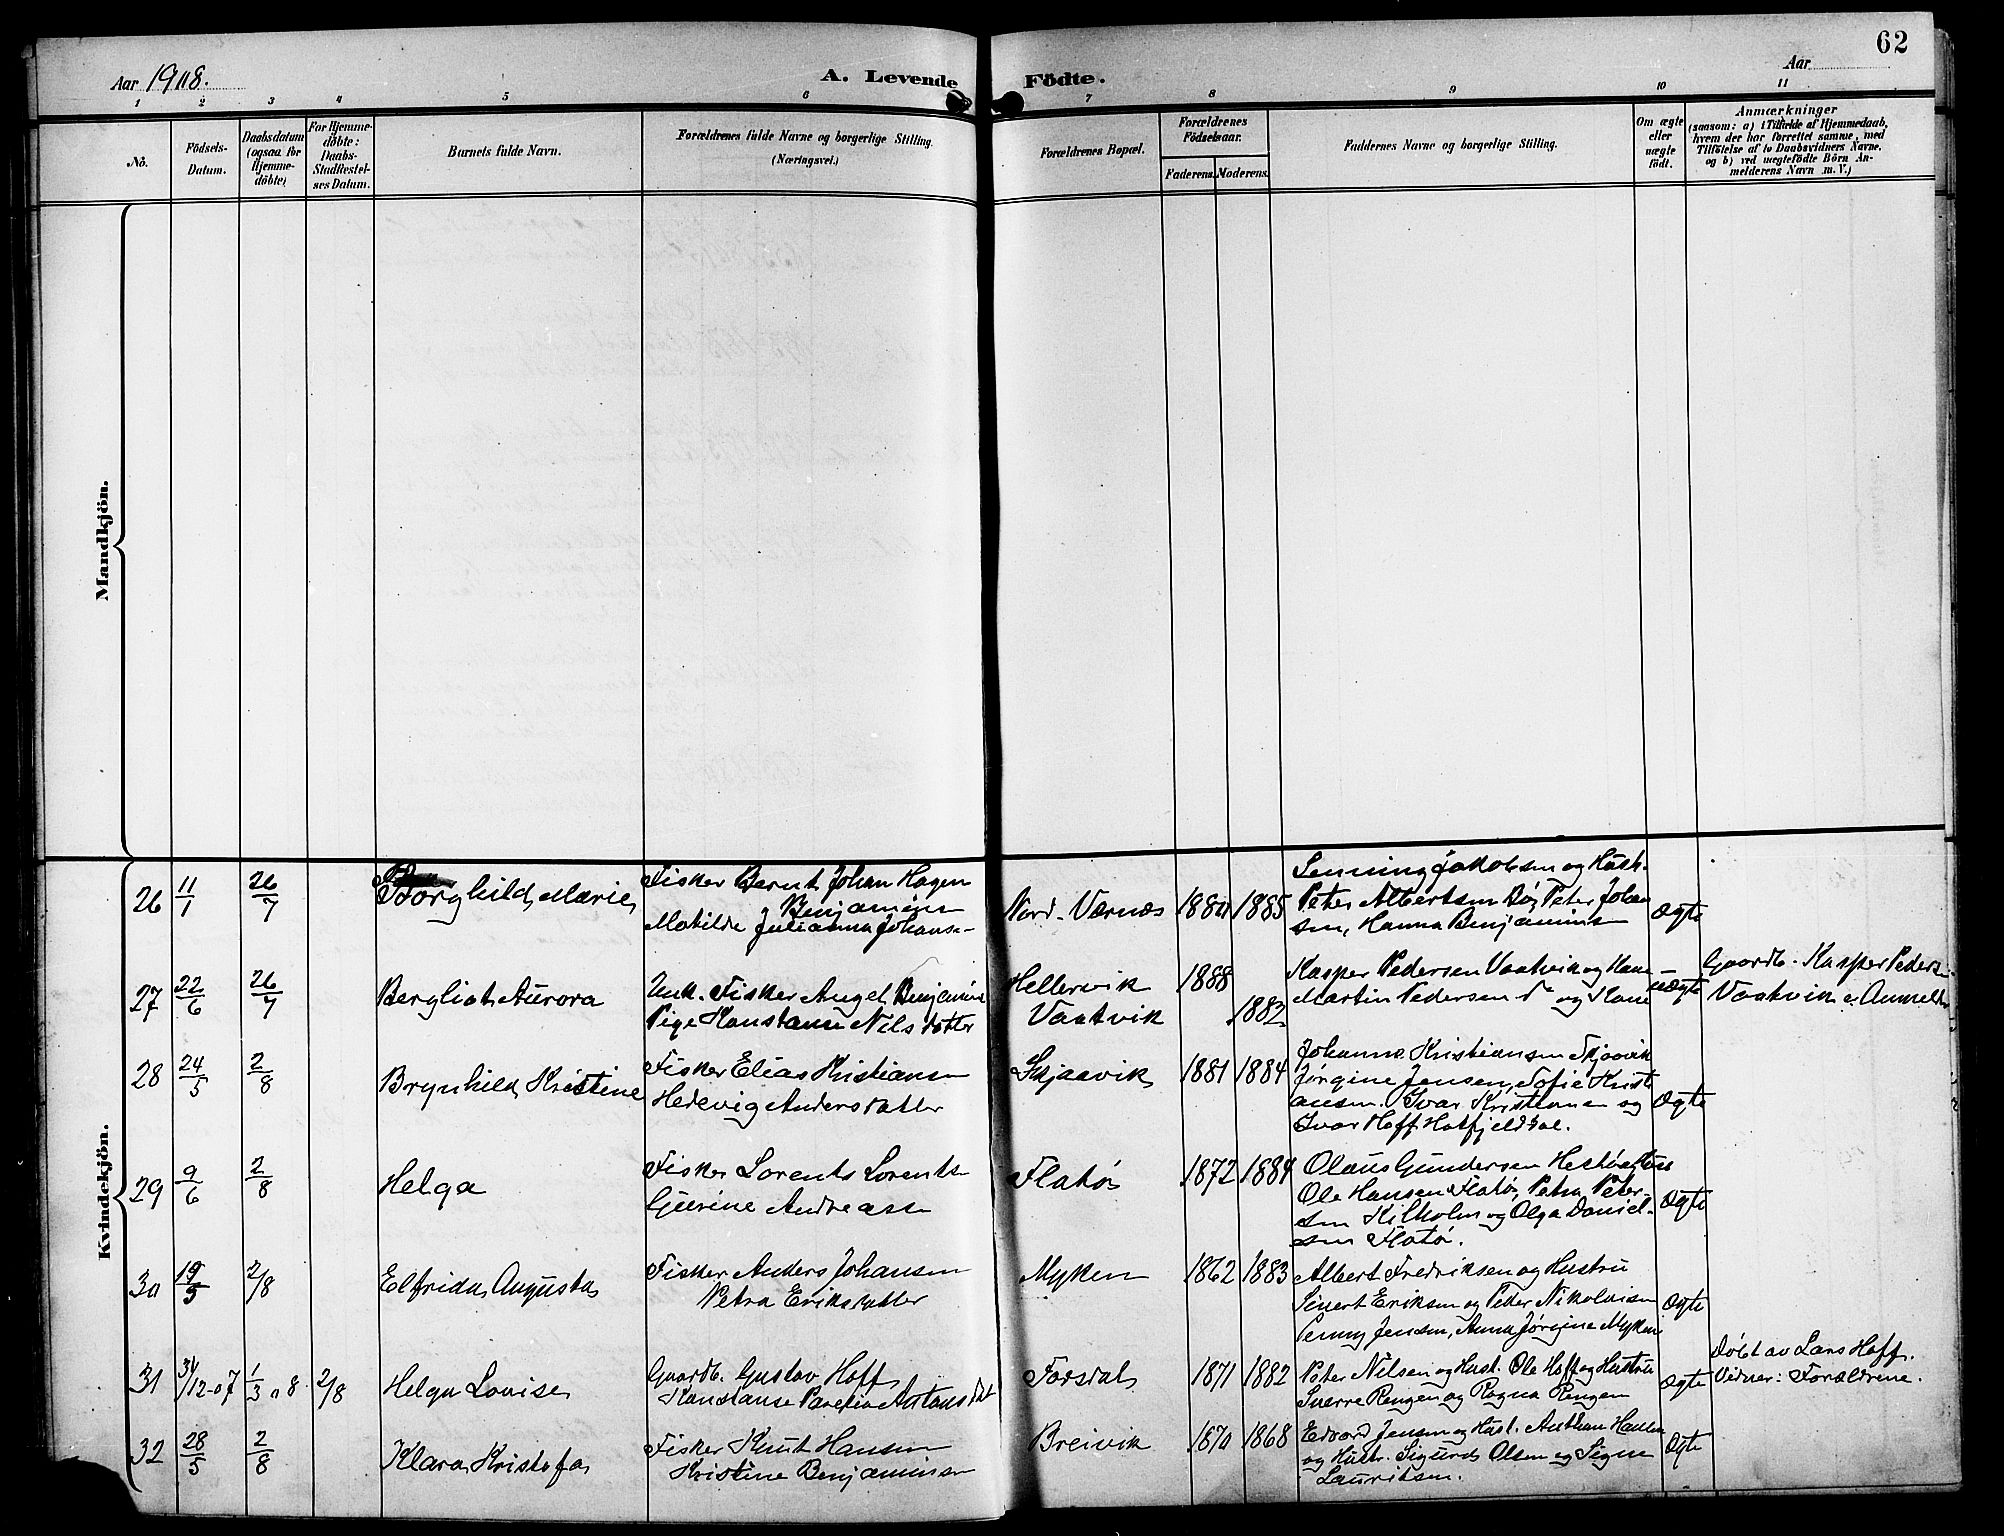 62
Aar 1908.
A. Levende Födte.
Aar
1 2 3 4 5 6 7 8 9 10 11
No.
Födsels-
Datum.
Daabsdatum
(ogsaa for
Hjemme-
döbte)
For Hjemme-
döbte:
Daabs-
Stadfestel-
ses Datum.
Barnets fulde Navn.
Forældrenes fulde Navne og borgerlige Stilling.
(Næringsvei.)
Forældrenes Bopæl.
Forældrenes
Födselsaar.
Faderens. Moderens.
Faddernes Navne og borgerlige Stilling.
Om ægte
eller
uægte
födt.
Anmærkninger
(saasom: a) i Tilfælde af Hjemmedaab,
hvem der har forrettet samme, med
Tilföielse af to Daabsvidners Navne,
og b) ved uægtefödte Börn An-
melderens Navn m. V.)
Mandkjön.
Kvindekjön.
26 11/1 26/7
Borghild Marie
Fisker Bernt Johan Hagen
Benjamins
Matilde Julianna Johans-
Nord-Værnæs 1880 1885
Jakobsen og Hust.
Peter Albertsen Peter Johan
sen, Hanna Benjamins
Ægte
27 22/6 26/7
Bergliot Aurora
Unk. Fisker Angel Benjamins
Pige Konstanse Nilsdatter
Hellervik 1888
Vaatvik 1882
Kasper Pedersen Vaatvik og Kone
Martin Pedersen og Kone
uægte
Gaardb. Kasper Peders
Vaatvik er Anmelder
28 24/5 2/8
Brynhild Kristine
Fisker Elias Kristiansen
Hedevig Andersdatter
Skjaavik 1881 1884
Johanne Kristiansen Skjaavik
Jørgine Jensen, Sofie Krist
ansen. Ivar Kristiansen og
Ivar Hoff Hatfjelddal.
Ægte
29 9/6 2/8
Helga
Fisker Lorents Lorents
Gjurine Andreassen
Flatø 1872 1884
Olaus Gundersen
Ole Hansen Flatø, Petra Peter-
sen Kilholm og Olga Daniel-
sen Flatø.
Ægte
30 19/5 2/8
Elfrida Augusta
Fisker Anders Johansen
Petra Eriksdatter
Myken 1862 1883
Albert Fredriksen og Hustru
Sivert Eriksen og Peder Nikolaisen
Penny Jensen, Anna Jørgine Myken
Ægte
31 31/12-07 1/3 08 2/8
Helga Louise
Gaardb. Gustav Hoff
Konstanse Antonsdat
Forsdal 1871 1882
Peter Nilsen og Hust. Ole Hoff og Hustru
Sverre Rengen og Ragna Rengen
Ægte
Døbt av Lars Hoff.
Vidner: Forældrene.
32 28/5 2/8
Klara Kristofa
Fisker Knut Hansen
Kristine Benjaminsen
Breivik 1870 1868
Edvard Jensen og Hust. Anthon Hansen
og Hustr. Sigurd Olsen og Signe
Lauritsen.
Ægte